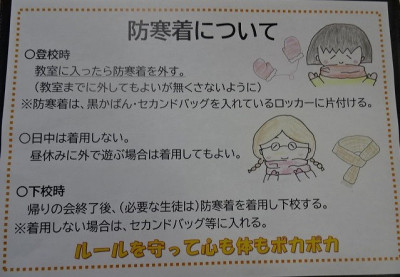 防寒着について
○登校時
教室に入ったら防寒着を外す。
（教室までに外してもよいが無くさないように）
※防寒着は、黒かばん・セカンドバッグを入れているロッカーに片付ける。
○日中は着用しない。
昼休みに外で遊ぶ場合は着用してもよい。
○下校時
帰りの会終了後、（必要な生徒は）防寒着を着用し下校する。
※着用しない場合は、セカンドバッグ等に入れる。
ルールを守って心も体もポカポカ